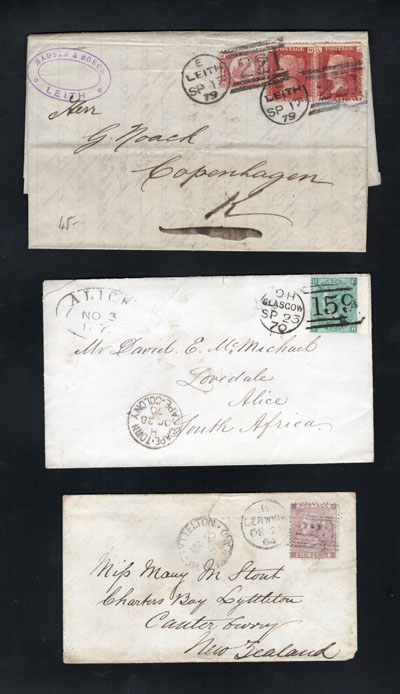 MADSEN & BORCH
LEITH
E
LEITH
SP 17
79
LEITH
SP 17
79
Herr
G. Noack
Copenhagen
K
45-
ALICE
NO 3
GLASGOW
SP 23
70
159
Mr David E. McMichael
Lovedale
Alice
South Africa
CAPE-TOWN
CAPE-COLONY
OC 26
70
LERWICK
64
POSTAGE
Miss Mary M Stout
Charters Bay Lyttleton
Canterbury
New Zealand